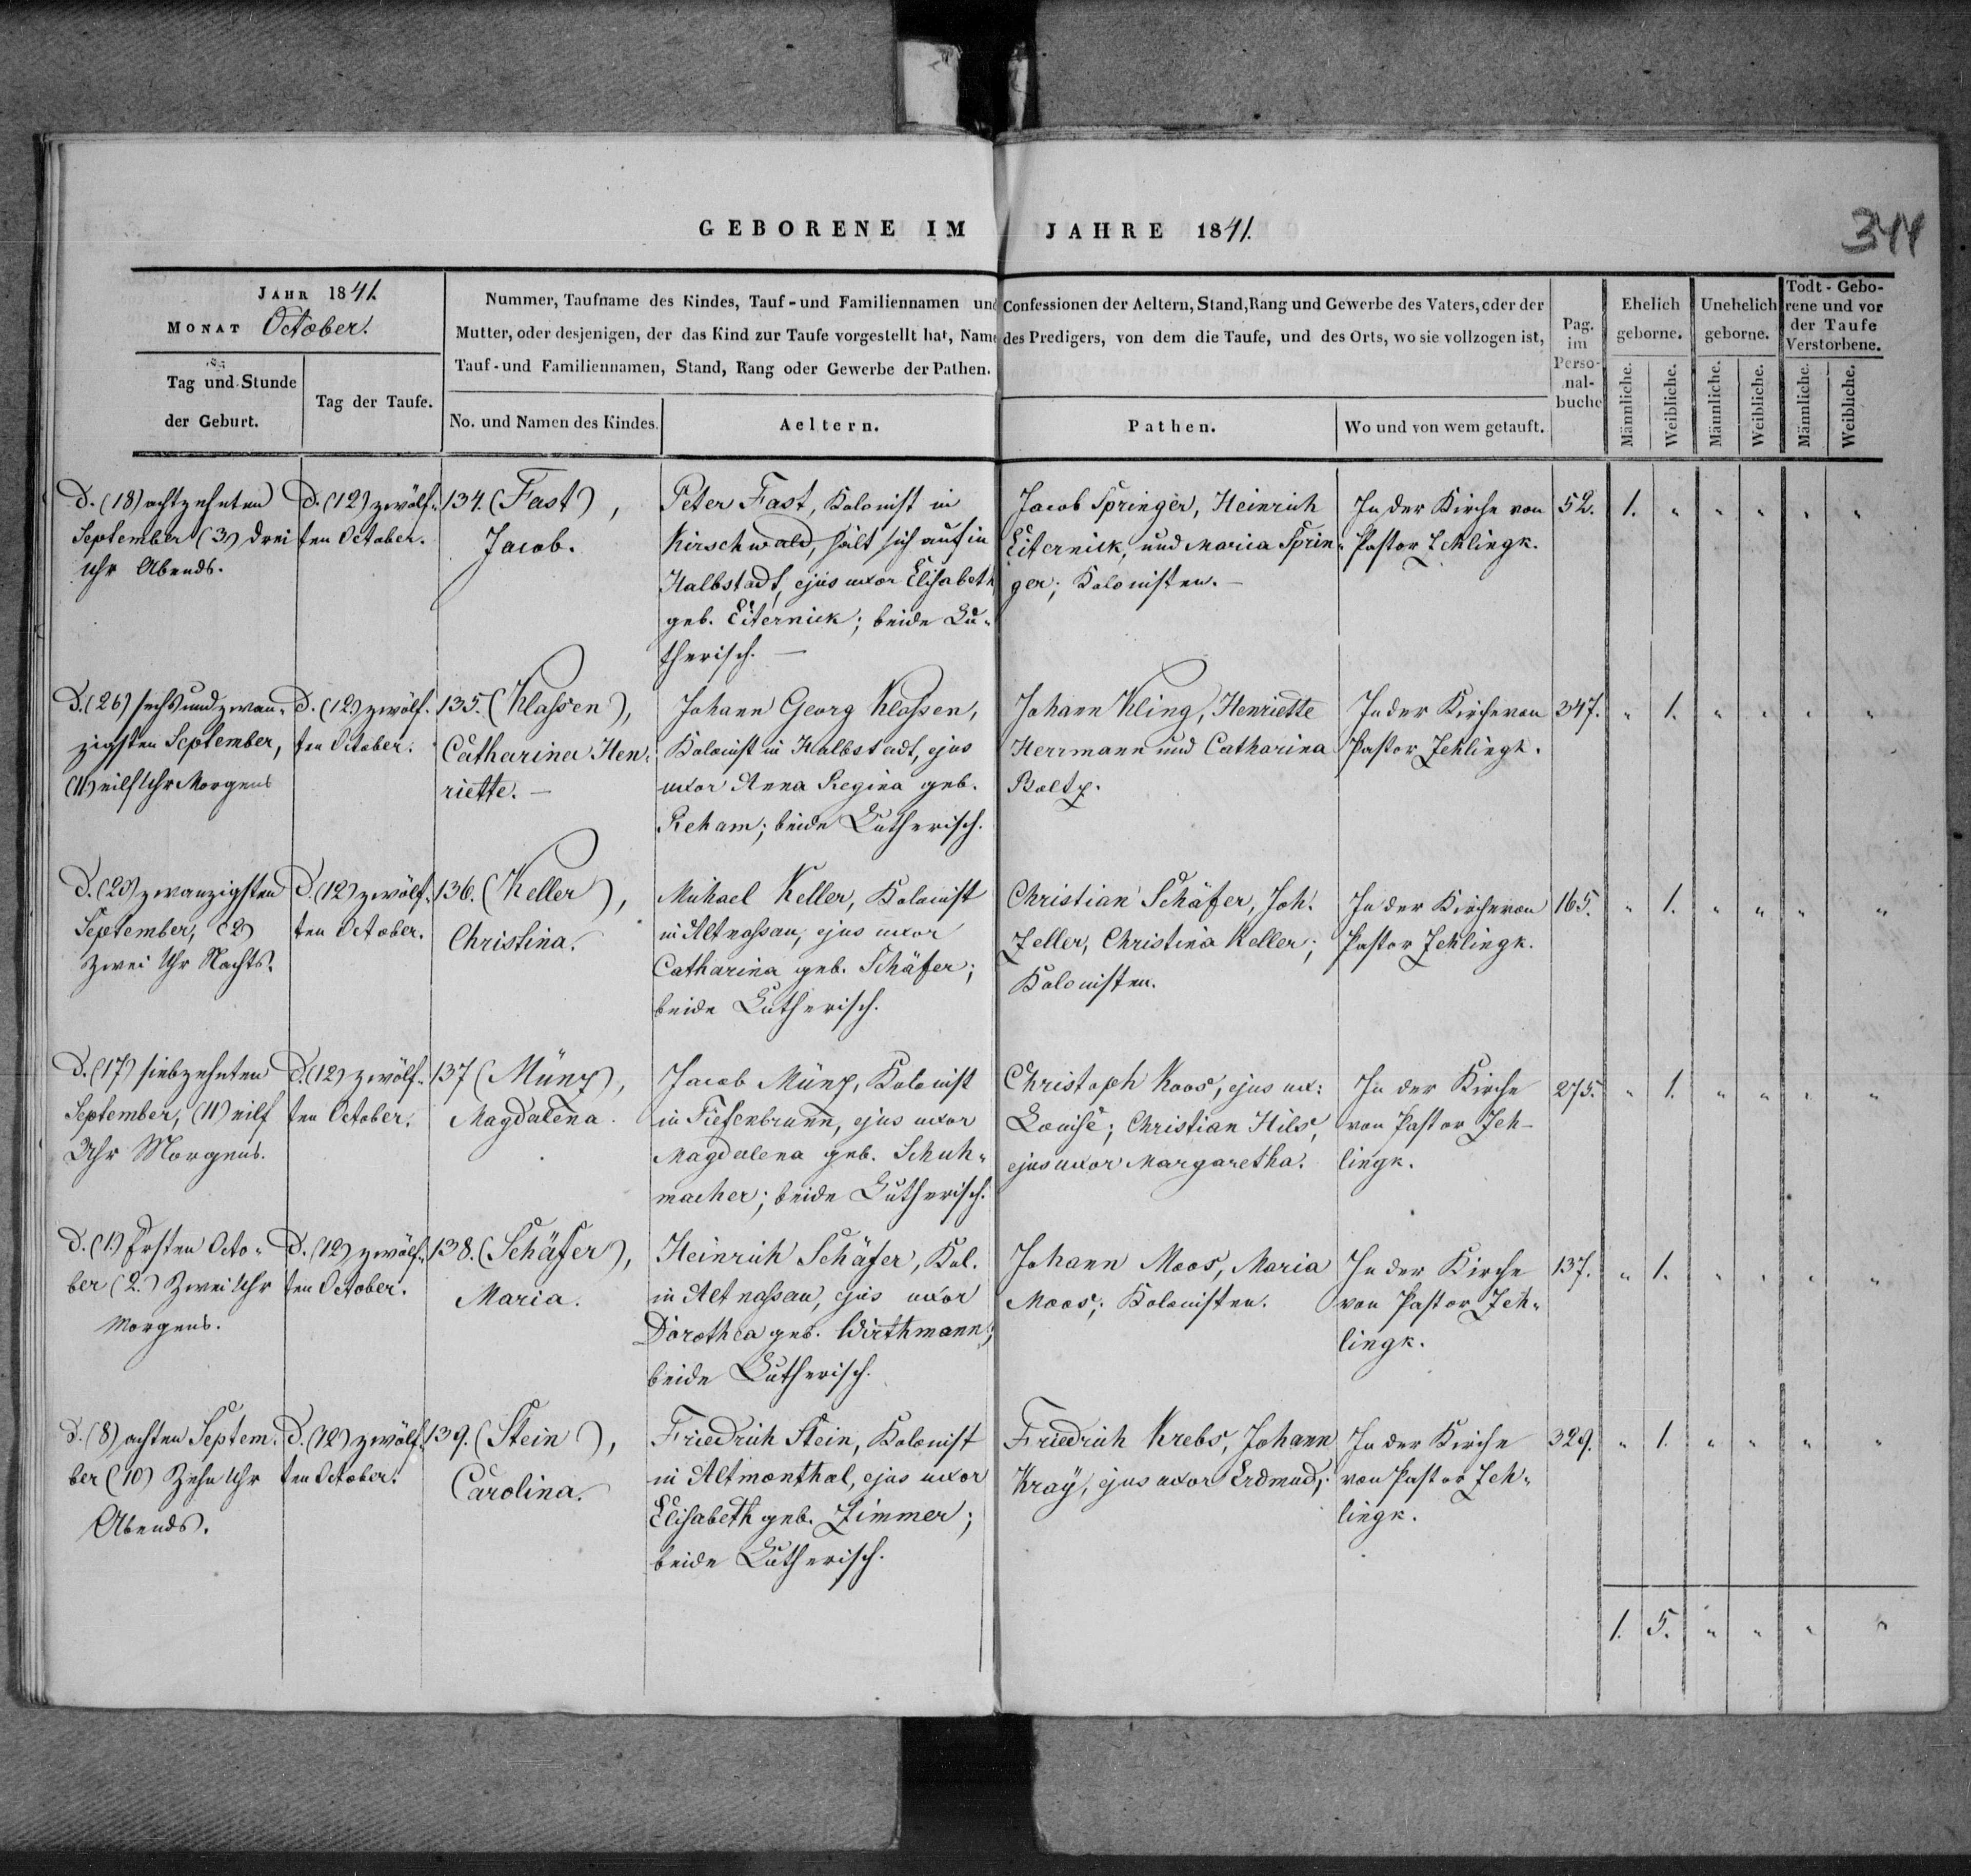 GEBORENE IM JAHRE 1841.
344
JAHR 1841.
MONAT October.
Tag und Stunde
der Geburt.
Tag der Taufe.
Nummer, Taufname des Kindes, Tauf-und Familiennamen und Confessionen der Aeltern, Stand, Rang und Gewerbe des Vaters, oder der
Mutter, oder desjenigen, der das Kind zur Taufe vorgestellt hat, Name des Predigers, von dem die Taufe, und des Orts, wo sie vollzogen ist,
Tauf-und Familiennamen, Stand, Rang oder Gewerbe der Pathen.
No. und Namen des Kindes.
Aeltern.
Pathen.
Wo und von wem getauft.
Pag.
im
Perso-
nal-
buche
Ehelich
geborne.
Unehelich
geborne.
Todt-Gebo-
rene und vor
der Taufe
Verstorbene.
Männliche.
Weibliche.
Männliche.
Weibliche.
Männliche.
Weibliche.
D. (18) achtzehnten
September (3) drei
Uhr Abends.
D. (12) zwölf-
ten October.
134. (Fast),
Jacob.
Peter Fast, Kolonist in
Kirschwald, hält sich auf in
Halbstadt, ejus uxor Elisabeth
geb. Eiternick; beide Lu-
therisch. —
Jacob Springer, Heinrich
Eiternick, und Maria Sprin-
ger; Kolonisten. —
In der Kirche von
Pastor Zehlingk.
52. 1. " " " " "
D. (26) sechs und zwan-
zigsten September,
(11) eilf Uhr Morgens
D. (12.) zwölf-
ten October.
135. (Klassen),
Catharina Hen-
riette. —
Johann Georg Klassen,
Kolonist in Halbstadt, ejus
uxor Anna Regina geb.
Reham; beide Lutherisch.
Johann Kling, Henriette
Herrmann und Catharina
Boltz.
In der Kirche von
Pastor Zehlingk.
347. " 1. " " " "
D. (20) zwanzigsten
September, (2)
zwei Uhr Nachts.
D. (12) zwölf-
ten October.
136. (Keller),
Christina.
Michael Keller, Kolonist
in Altnassau, ejus uxor
Catharina geb. Schäfer;
beide Lutherisch.
Christian Schäfer, Joh.
Zeller, Christina Keller;
Kolonisten.
In der Kirche von
Pastor Zehlingk.
165. " 1. " " " "
D. (17) siebzehnten
September, (11) eilf
Uhr Morgens.
D. (12) zwölf-
ten October.
137 (Münz),
Magdalena.
Jacob Münz, Kolonist
in Tiefenbrunn, ejus uxor
Magdalena geb. Schuh-
macher; beide Lutherisch.
Christoph Koos, ejus ux:
Louise; Christian Hils,
ejus uxor Margaretha.
In der Kirche
von Pastor Zeh-
lingk.
275. " 1. " " " "
D. (1.) Ersten Octo-
ber (2.) Zwei Uhr
Morgens.
D. (12) zwölf-
ten October.
138. (Schäfer),
Maria.
Heinrich Schäfer, Kol.
in Altnassau, ejus uxor
Dorothea geb. Wirthmann;
beide Lutherisch.
Johann Moos, Maria
Moos; Kolonisten.
In der Kirche
von Pastor Zeh-
lingk.
137. " 1. " " " "
D. (8) achten Septem-
ber (10) Zehn Uhr
Abends.
D. (12) zwölf-
ten October.
139. (Stein),
Carolina.
Friedrich Stein, Kolonist
in Altmonthal, ejus uxor
Elisabeth geb. Zimmer;
beide Lutherisch.
Friedrich Krebs, Johann
Kraÿ, ejus uxor Erdmud;
In der Kirche
von Pastor Zeh-
lingk.
329. " 1. " " " "
1. 5. " " " "